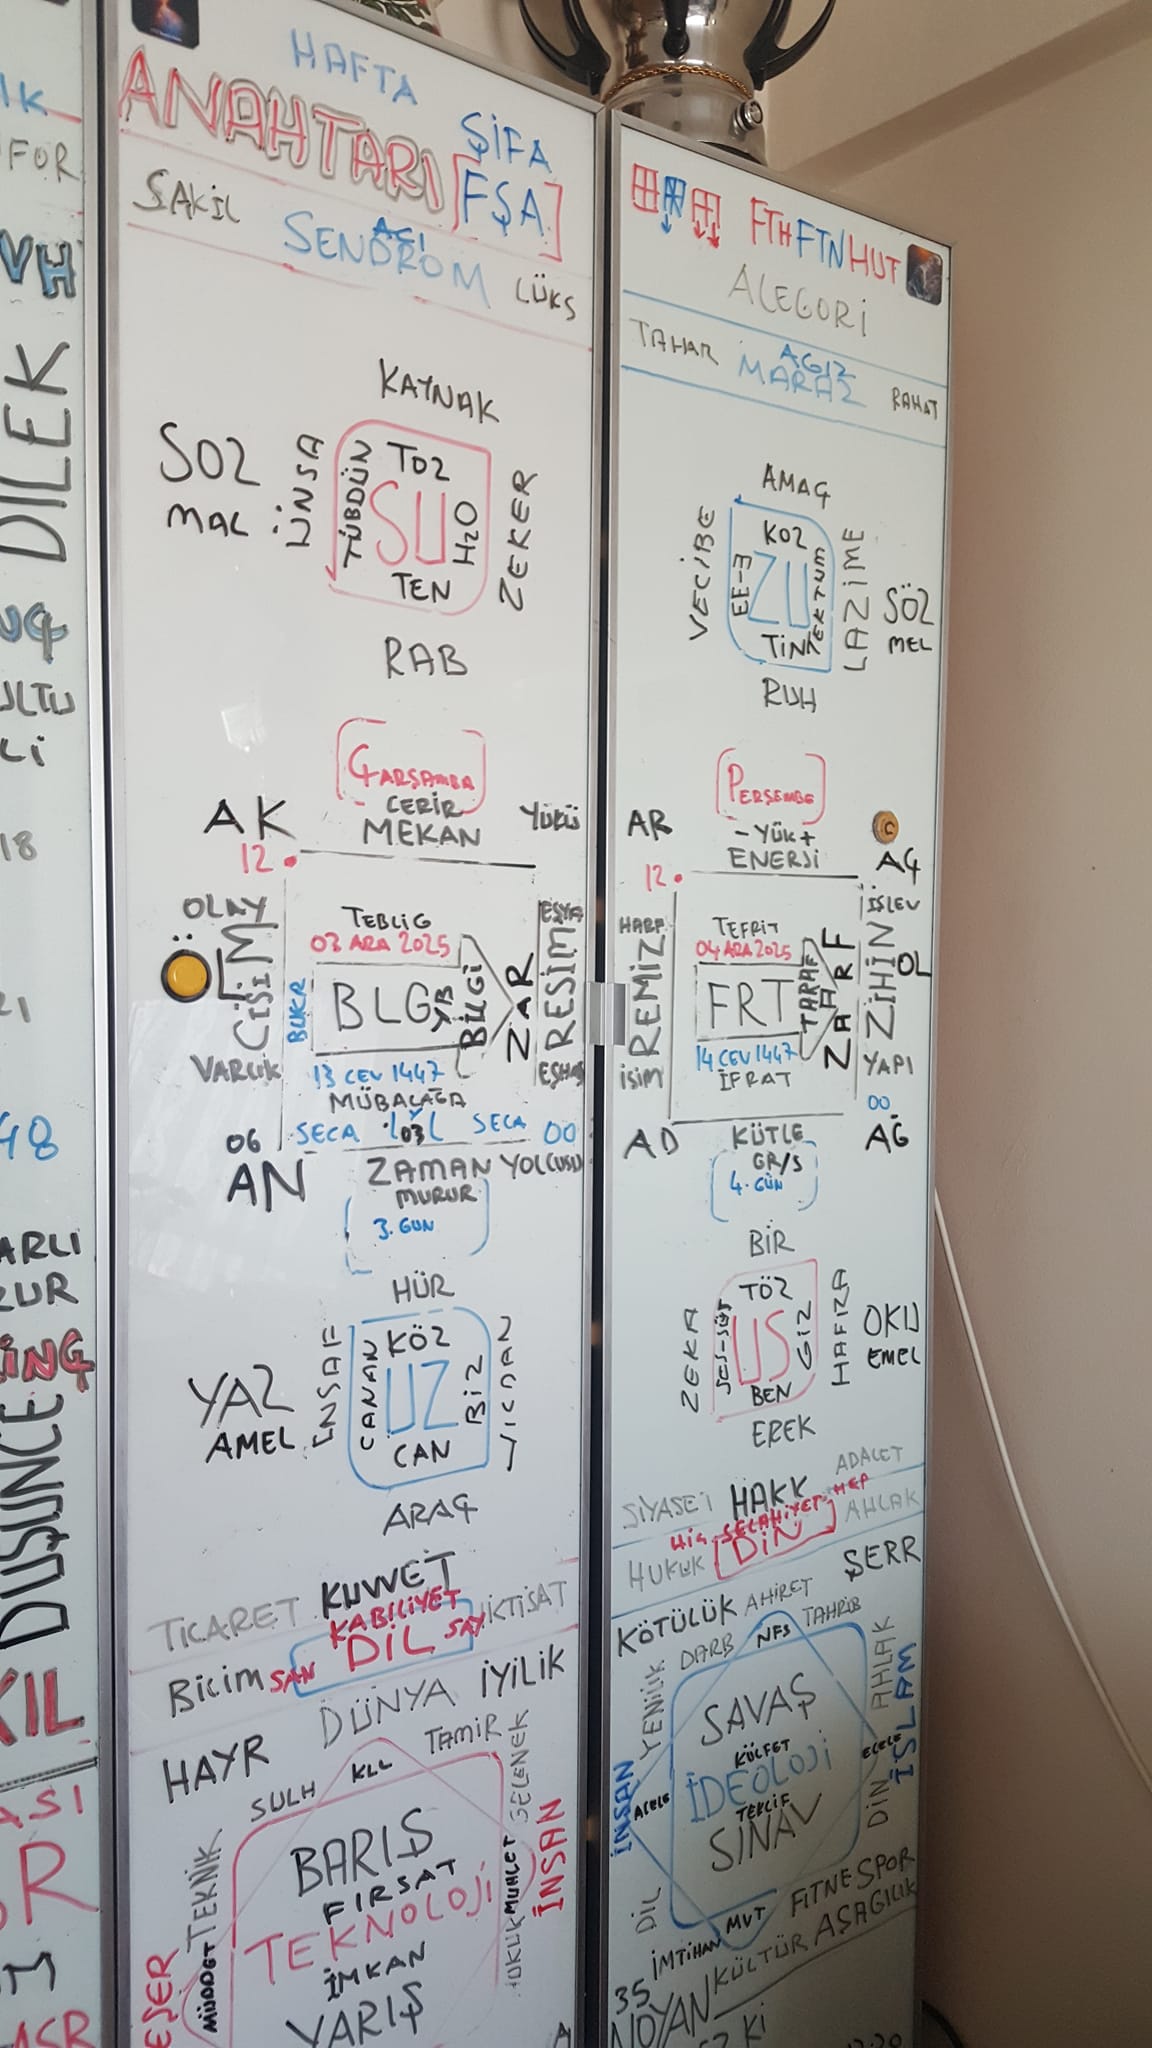 HAFTA
ANAHTARI
ŞİFA
[FŞA]
ŞAKİL
AGI
SENDROM
LÜKS
KAYNAK
SOZ
MAL
İNSA
TÜBDÜN
TOZ
SU
H2O
TEN
ZEKER
RAB
ÇARŞAMBA
CERİR
MEKAN
AK
YÜKÜ
12
OLAY
ÖL
CİSİM
VARLIK
BUKR
TEBLİG
03 ARA 2025
BLG
YB
BİLGİ
ZAR
EŞYA
RESİM
EŞHAS
13 CEV 1447
MÜBALAĞA
06
SECA
SECA
00
AN
ZAMAN YOLCUSU
MURUR
3. GUN
HÜR
YAZ
AMEL
ENSAF
CANAN
KÖZ
UZ
BİZ
CAN
VİCDAN
ARAÇ
TİCARET
KUVVET
İKTİSAT
KABİLİYET
BİLİM
SAN
DİL
SAY
DÜNYA
İYİLİK
HAYR
SULH
KLL
TAMİR
GELENEK
TEKNİK
BARIŞ
FIRSAT
TEKNOLOJİ
İMKAN
YARIŞ
MÜDDET
MUHLET
HUKUK
İNSAN
EŞER
FTHFTNHUT
ALEGORİ
TAHAR
AGIZ
MARAZ
RAHAT
AMAÇ
VECİBE
EE-3
KOZ
ZU
TEKTUM
TİN
LAZİME
SÖZ
MEL
RUH
PERŞEMBE
AR
-YÜK+
ENERJİ
AÇ
12
İŞLEV
HARF
REMİZ
İSİM
TEFRİT
04 ARA 2025
FRT
TARAF
ZARF
ZİHİN
OL
YAPI
14 CEV 1447
İFRAT
00
AD
KÜTLE
AĞ
GR/S
4. GÜN
BİR
ZEKA
SES-SÜS
TÖZ
US
GİZ
BEN
HAFIZA
OKU
EMEL
EREK
ADALET
SİYASET
HAKK
HİÇ SELAHİYET HEP
AHLAK
HUKUK
DİN
ŞERR
KÖTÜLÜK
AHİRET
DARB
NFS
TAHRİB
YENİLİK
AHLAK
SAVAŞ
KÜLFET
İDEOLOJİ
TEKLİF
SINAV
İNSAN
ACELE
ECELE
İSLAM
DİN
DİL
MVT
FİTNE SPOR
İMTİHAN
KÜLTÜR AŞAGILIK
35
NOYAN
FOR
VE
DİLEK
18
48
DÜŞÜNCE